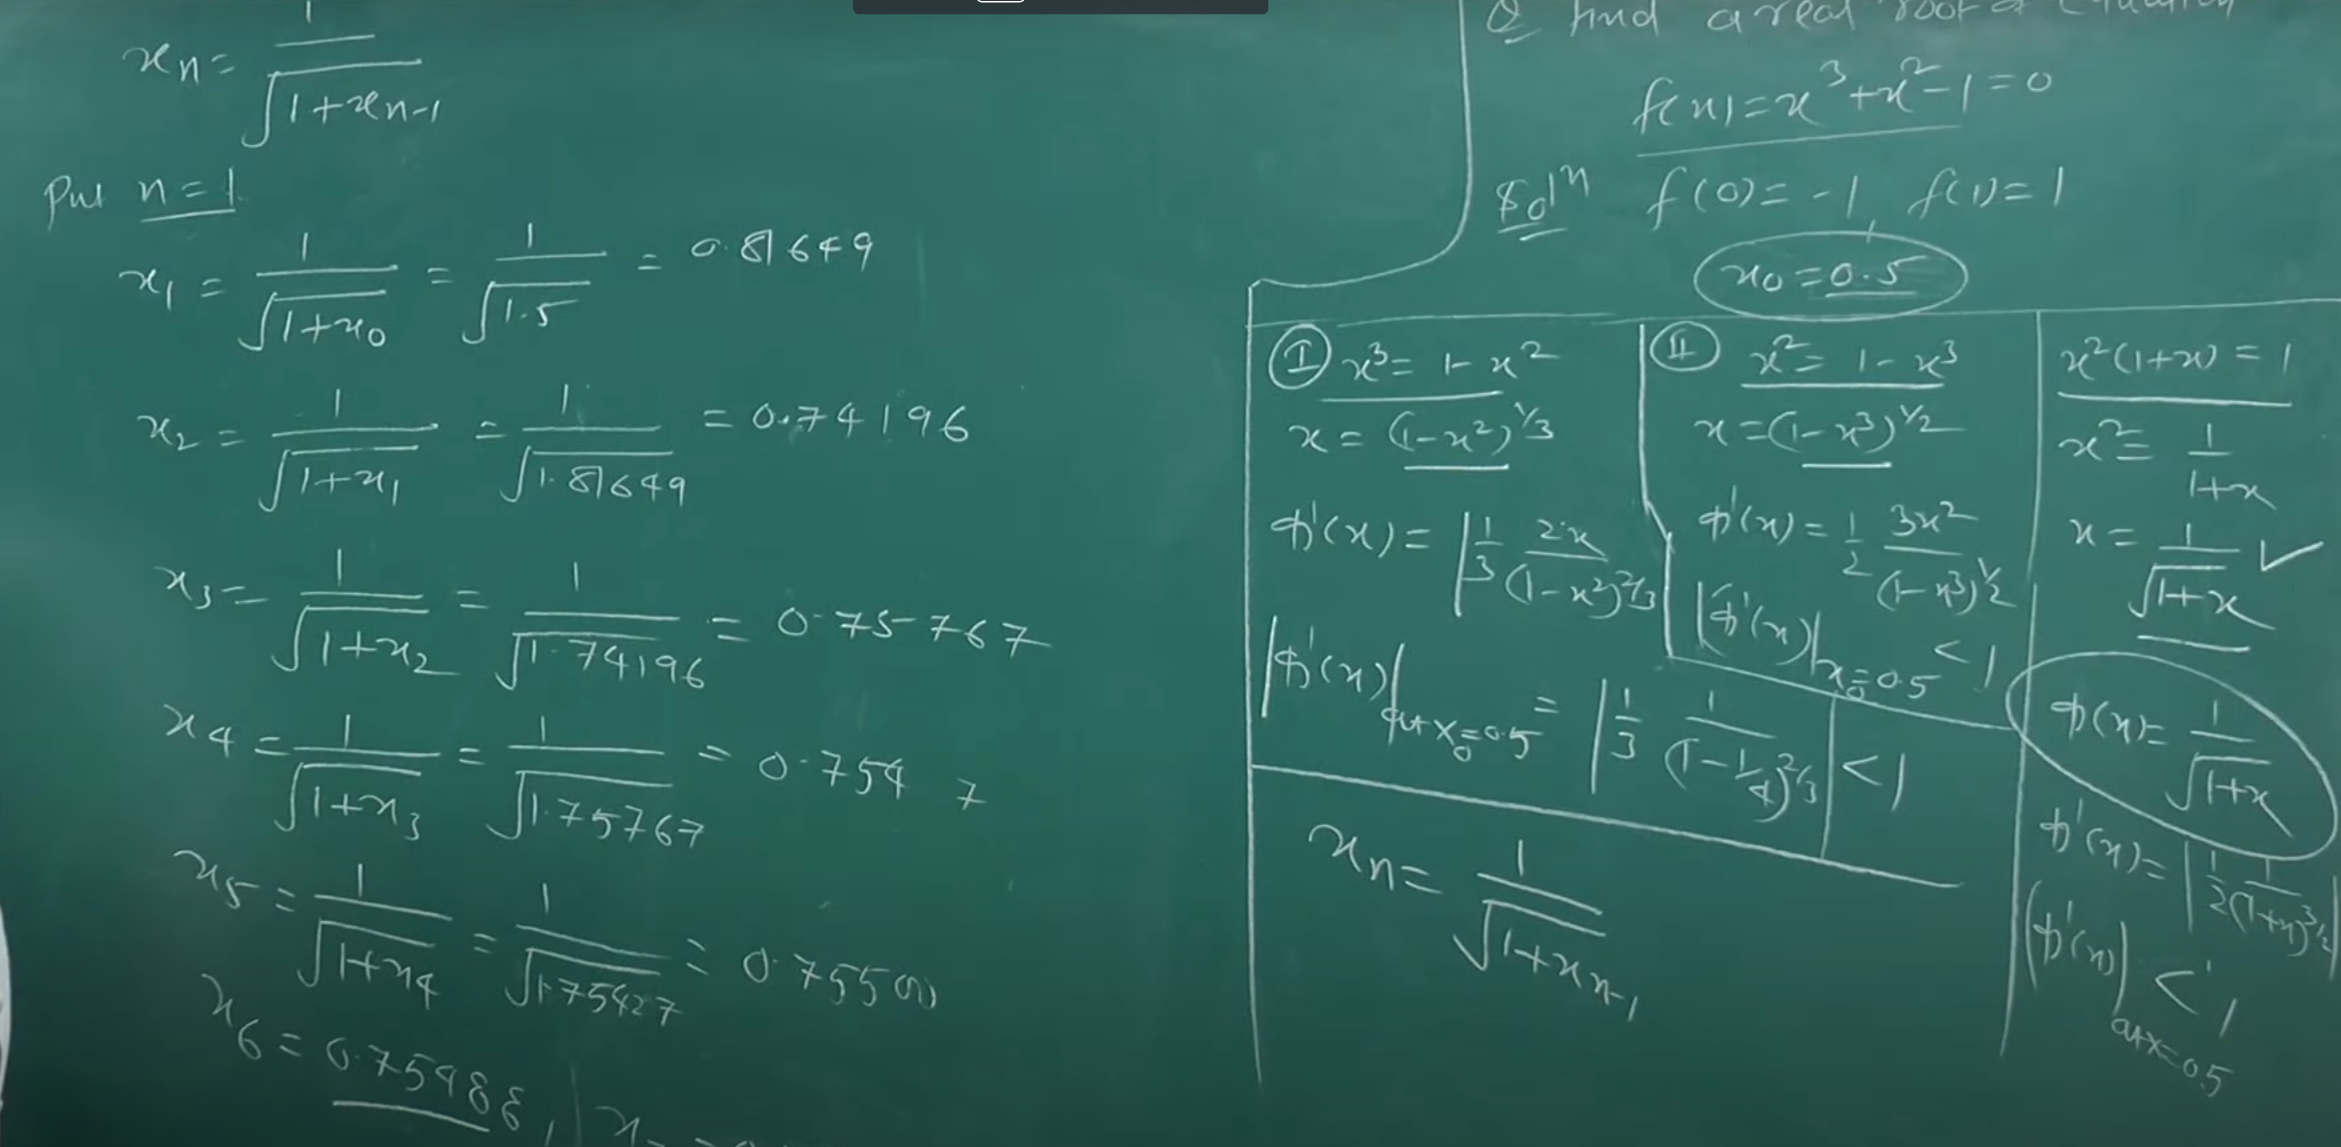 xn = 1/√(1+xn-1)
Put n = 1
x1 = 1/√(1+x0) = 1/√1.5 = 0.81649
x2 = 1/√(1+x1) = 1/√1.81649 = 0.74196
x3 = 1/√(1+x2) = 1/√1.74196 = 0.75767
x4 = 1/√(1+x3) = 1/√1.75767 = 0.754 7
x5 = 1/√(1+x4) = 1/√1.75427 = 0.7550
x6 = 0.75488,
Q find a real root of equation
f(x) = x³+x²-1=0
Solⁿ f(0) = -1, f(1) = 1
x0 = 0.5
I x³ = 1-x²
x = (1-x²)^1/3
ϕ'(x) = |1/3 2x/(1-x²)^2/3
|ϕ'(x)| at x0=0.5 = |1/3 1/(1-1/4)^2/3| < 1
II x² = 1-x³
x = (1-x³)^1/2
ϕ'(x) = 1/2 3x²/(1-x³)^1/2
|ϕ'(x)| x0=0.5 < 1
x²(1+x) = 1
x² = 1/(1+x)
x = 1/√(1+x) ✓
ϕ(x) = 1/√(1+x)
ϕ'(x) = |1/2 1/(1+x)^3/2|
|ϕ'(x)| at x=0.5 < 1
xn = 1/√(1+xn-1)